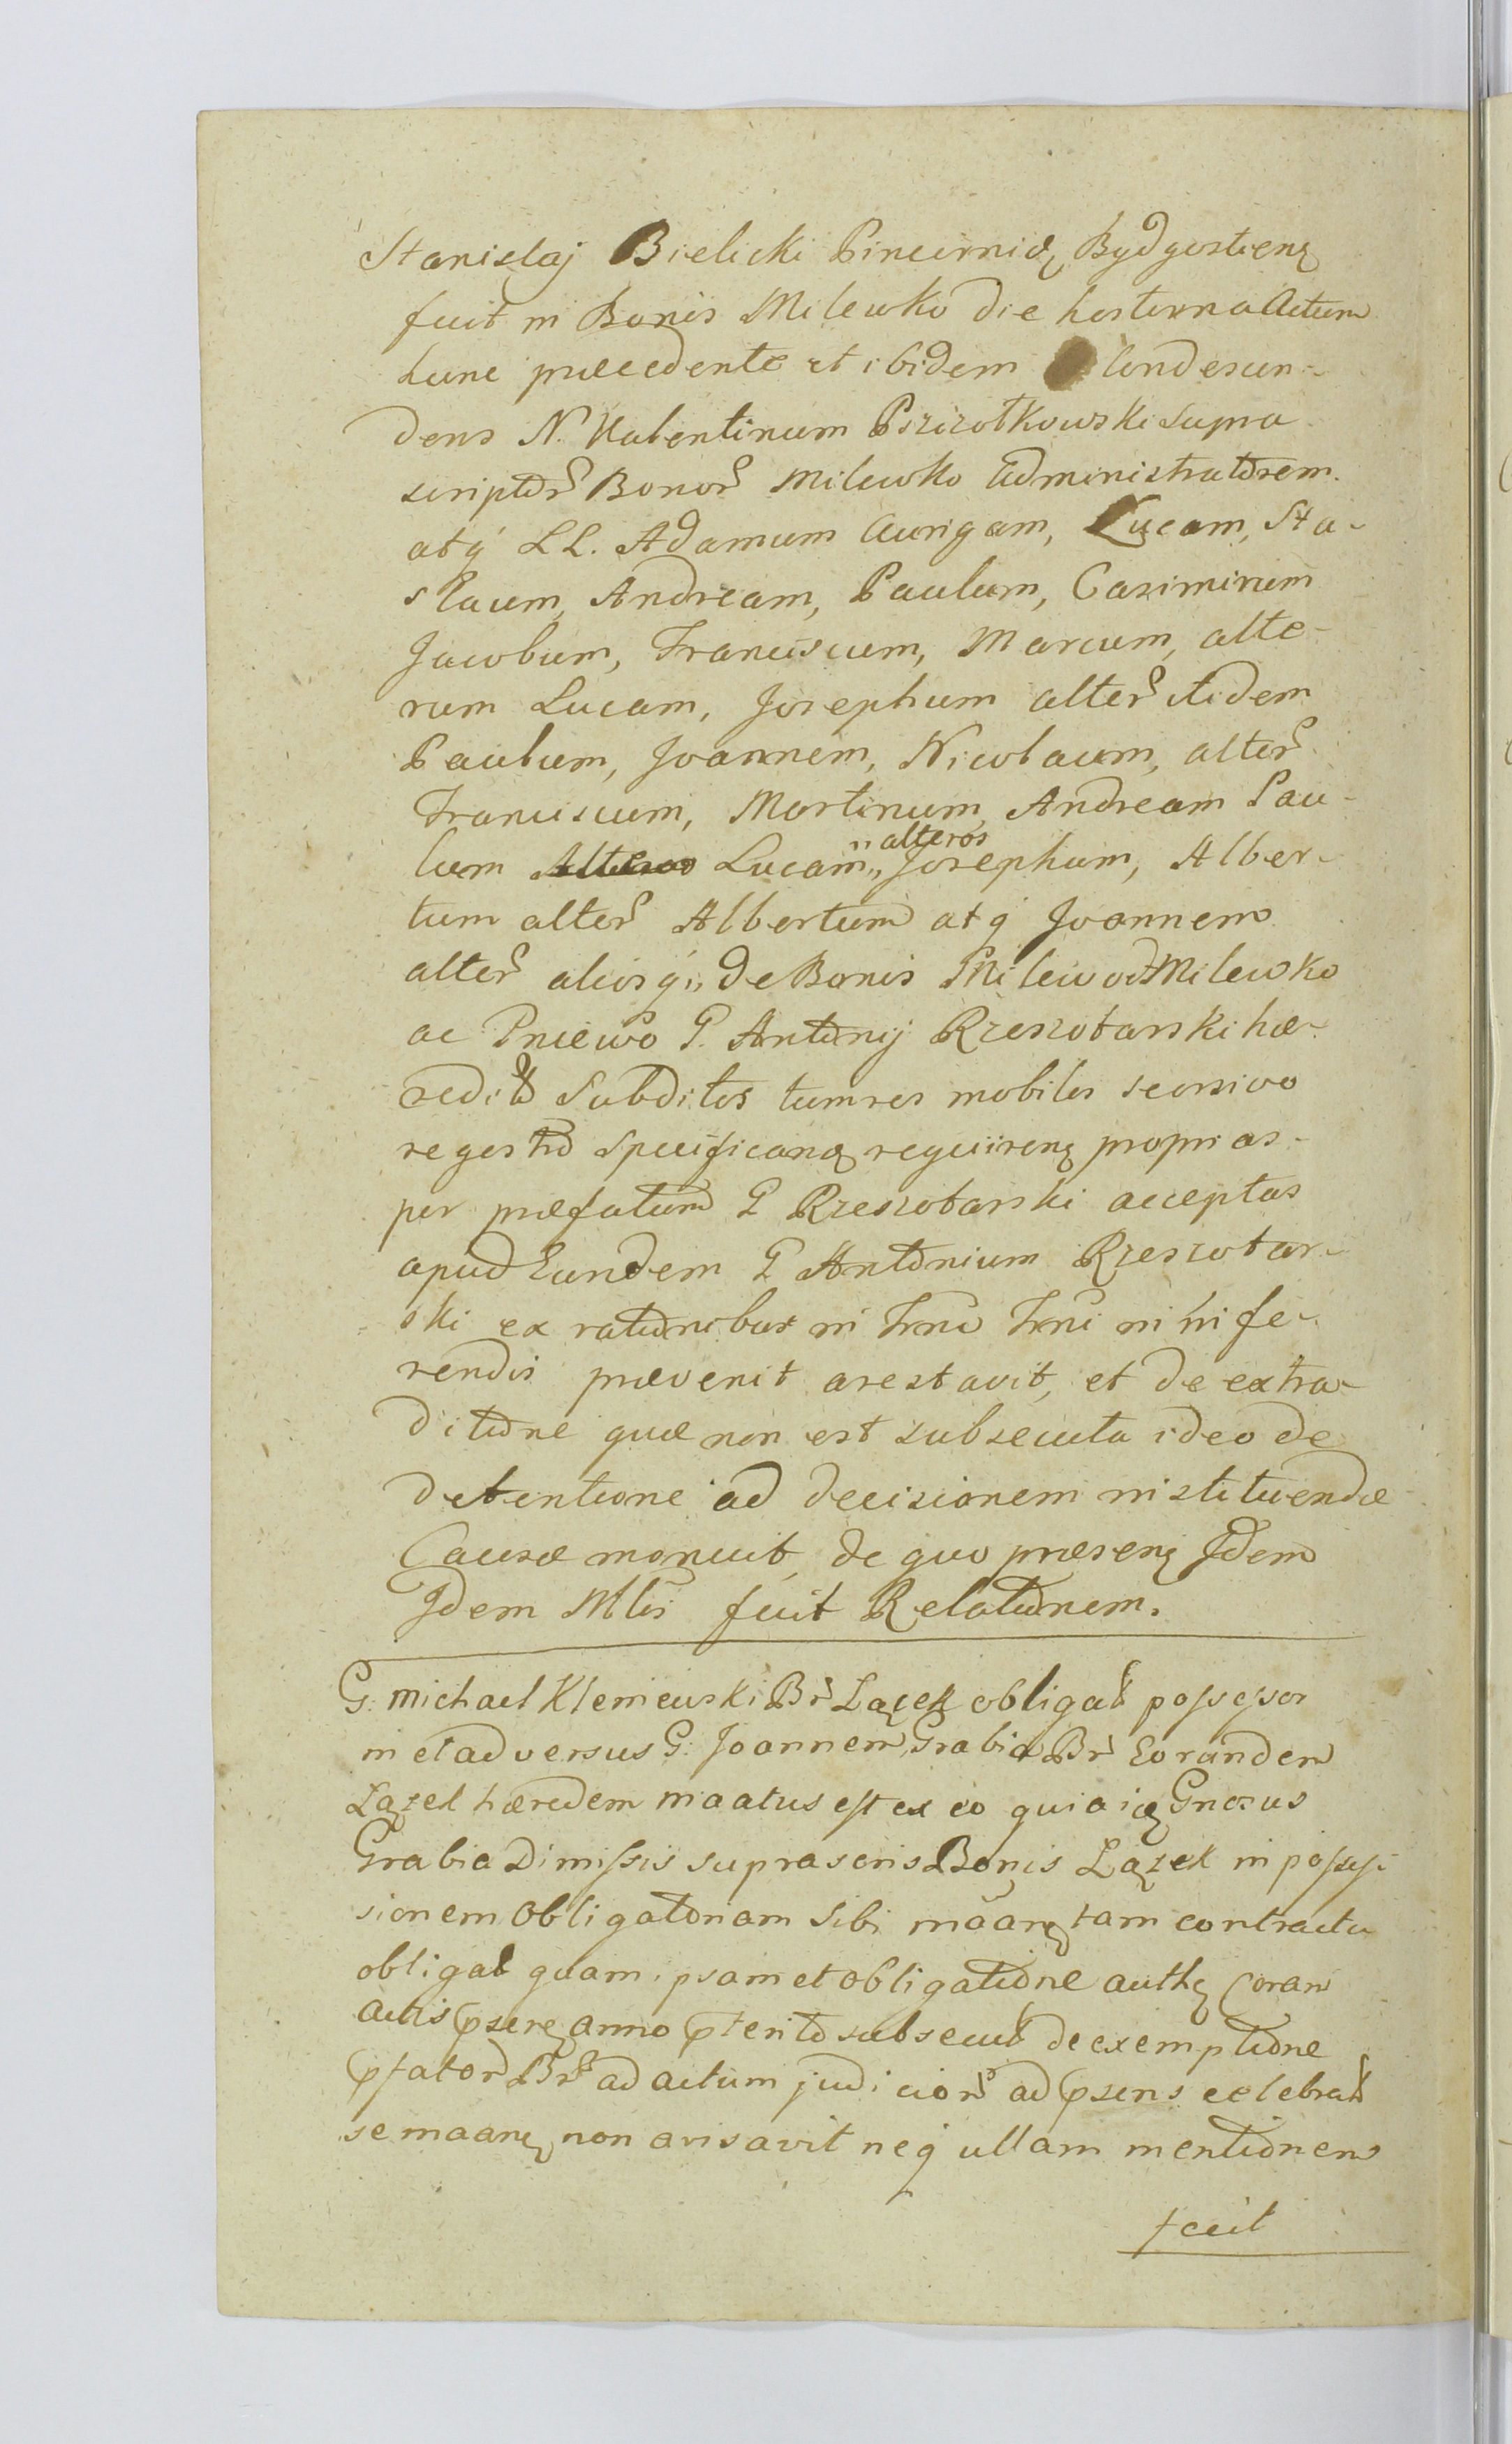 Stanislaj Bielicki Pincernidę Bydgostienę
fuit in Bonis Milewko die hesterna Actum
hunc præcedente et ibidem Condescen-
dens N. Valentinum Pszczołkowski supra
scriptor̃ Bonor̃ Milewko Administratorem
atq́ LL. Adamum Aurigam, Lucam, Sta-
slaum, Andream, Paulum, Casimirum
Jacobum, Franciscum, Marcum, alte-
rum Lucam, Josephum alter̃ itidem
Paulum, Joannem, Nicolaum, alter̃
Franciscum, Martinum, Andream Pau-
lum Alteros Lucam,, "alteros Josephum, Alber-
tum alter̃ Albertum atq́ Joannem
alter̃ aliosq́,, de Bonis Milewo et Milewko
ac Pniewo G. Antonij Rzeszotarski hæ-
redit̃ Subditos tum res mobiles seorsivo
regestro Specificanę requirenę proprias
per præfatum G Rzeszotarski acceptas
apud Eundem G Antonium Rzeszotar-
ski ex rationibus in Trno Trni in infe-
rendis prævenit arestavit, et de extra-
ditione quæ non est subsecuta ideo de
detentione ad decisionem instituendæ
Causæ monuit, de quo præsenę Idem
Idem Mlis̃ fecit Relationem.
G. Michael Kleniewski Br̃ Lązek obligat̃ possessor
in et adversus G: Joannem Grabia Br̃ Eorundem
Lązek hæredem maatus est ex eo quia idę Gnosus
Grabia Dimissis suprascris Bonis Lązek in posses-
sionem Obligatoriam sibi maanę tam contractu
obligat̃ quam ipsamet obligatione authę coram
actis psenę anno pterito subsecut̃ de exemptione
pfator̃ Br̃ ad actum judicior̃ ad psens celebrat̃
se maanę non avisavit neq́ ullam mentionem
fecit